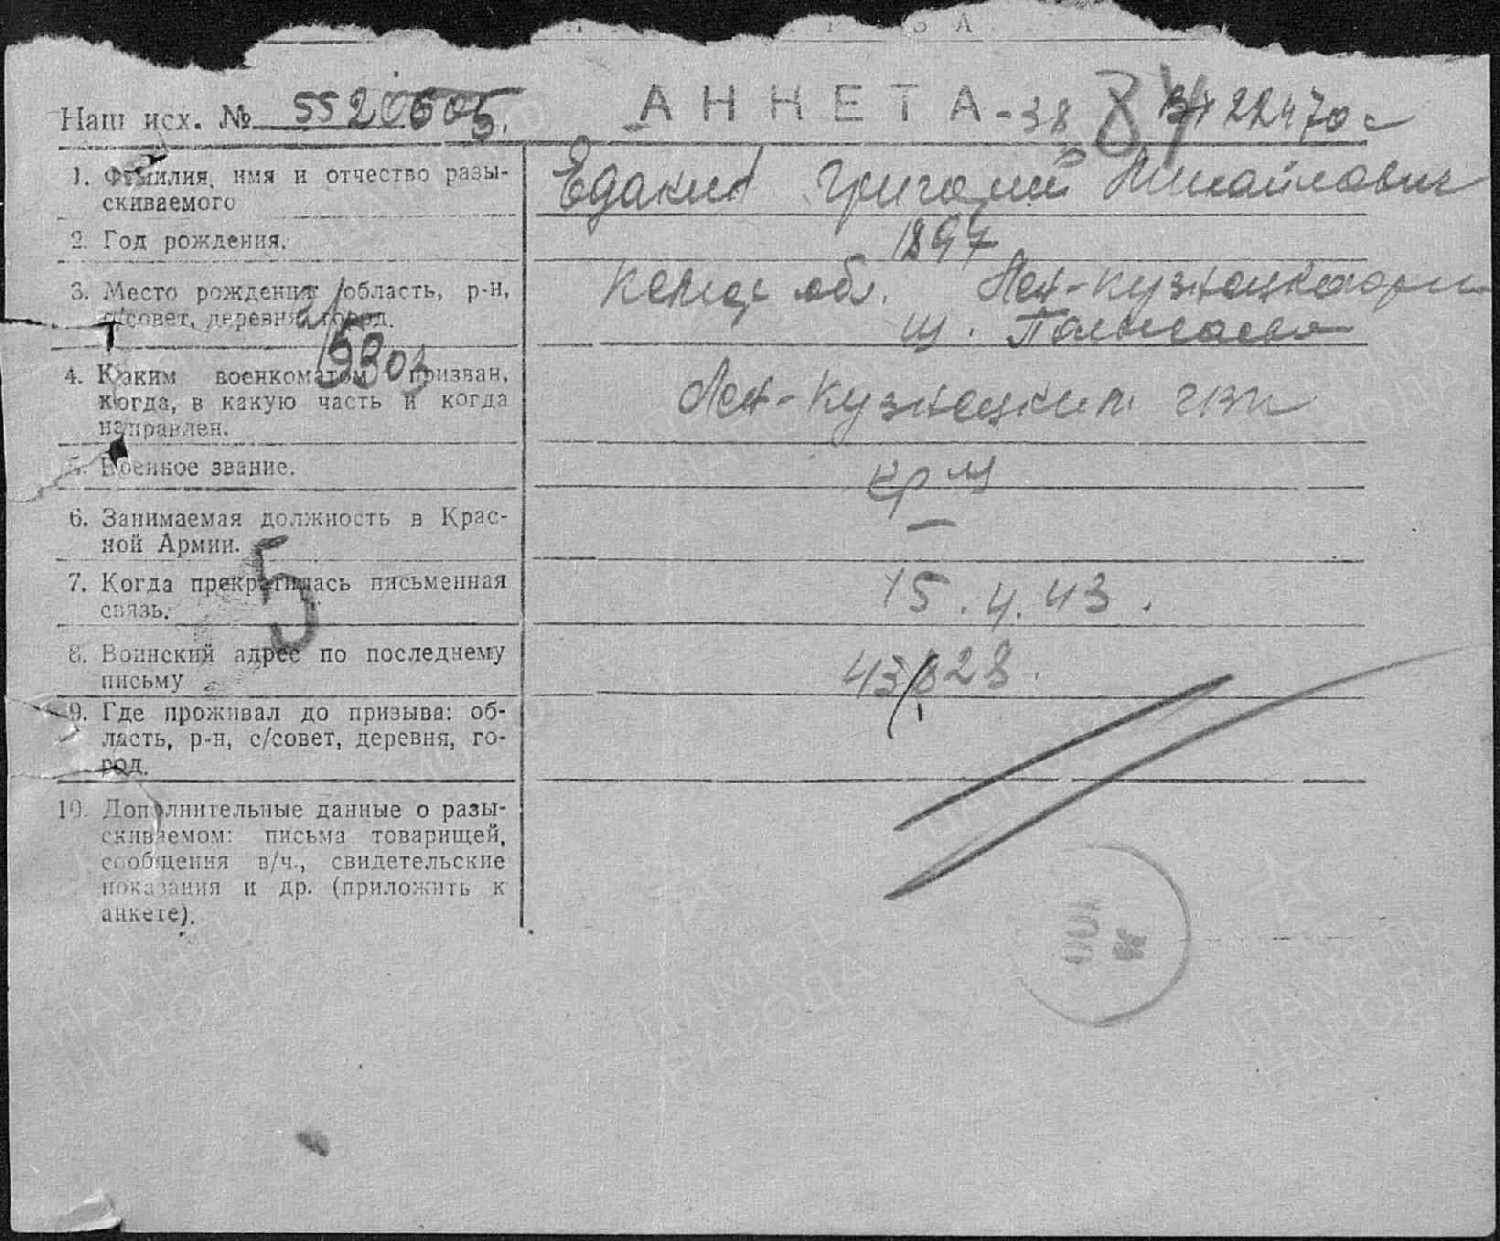 Наш исх. № 5520605.
АНКЕТА-38 22470с
1. Фамилия, имя и отчество разы-
скиваемого
Едакин Григорий Михайлович
2. Год рождения.
1897
3. Место рождения область, р-н,
с/совет, деревня, город.
Кемер обл. Лен-Кузнецкого р-н
4. Каким военкоматом призван,
когда, в какую часть и когда
направлен.
Лен-Кузнецким гвк
5. Военное звание.
кр-ц
6. Занимаемая должность в Крас-
ной Армии.
—
7. Когда прекратилась письменная
связь.
15.4.43.
8. Воинский адрес по последнему
письму
43628.
9. Где проживал до призыва: об-
ласть, р-н, с/совет, деревня, го-
род.
10. Дополнительные данные о разы-
скиваемом: письма товарищей,
сообщения в/ч., свидетельские
показания и др. (приложить к
анкете).
5
ПАМЯТЬ
НАРОДА
ПАМЯТЬ
НАРОДА
ПАМЯТЬ
НАРОДА